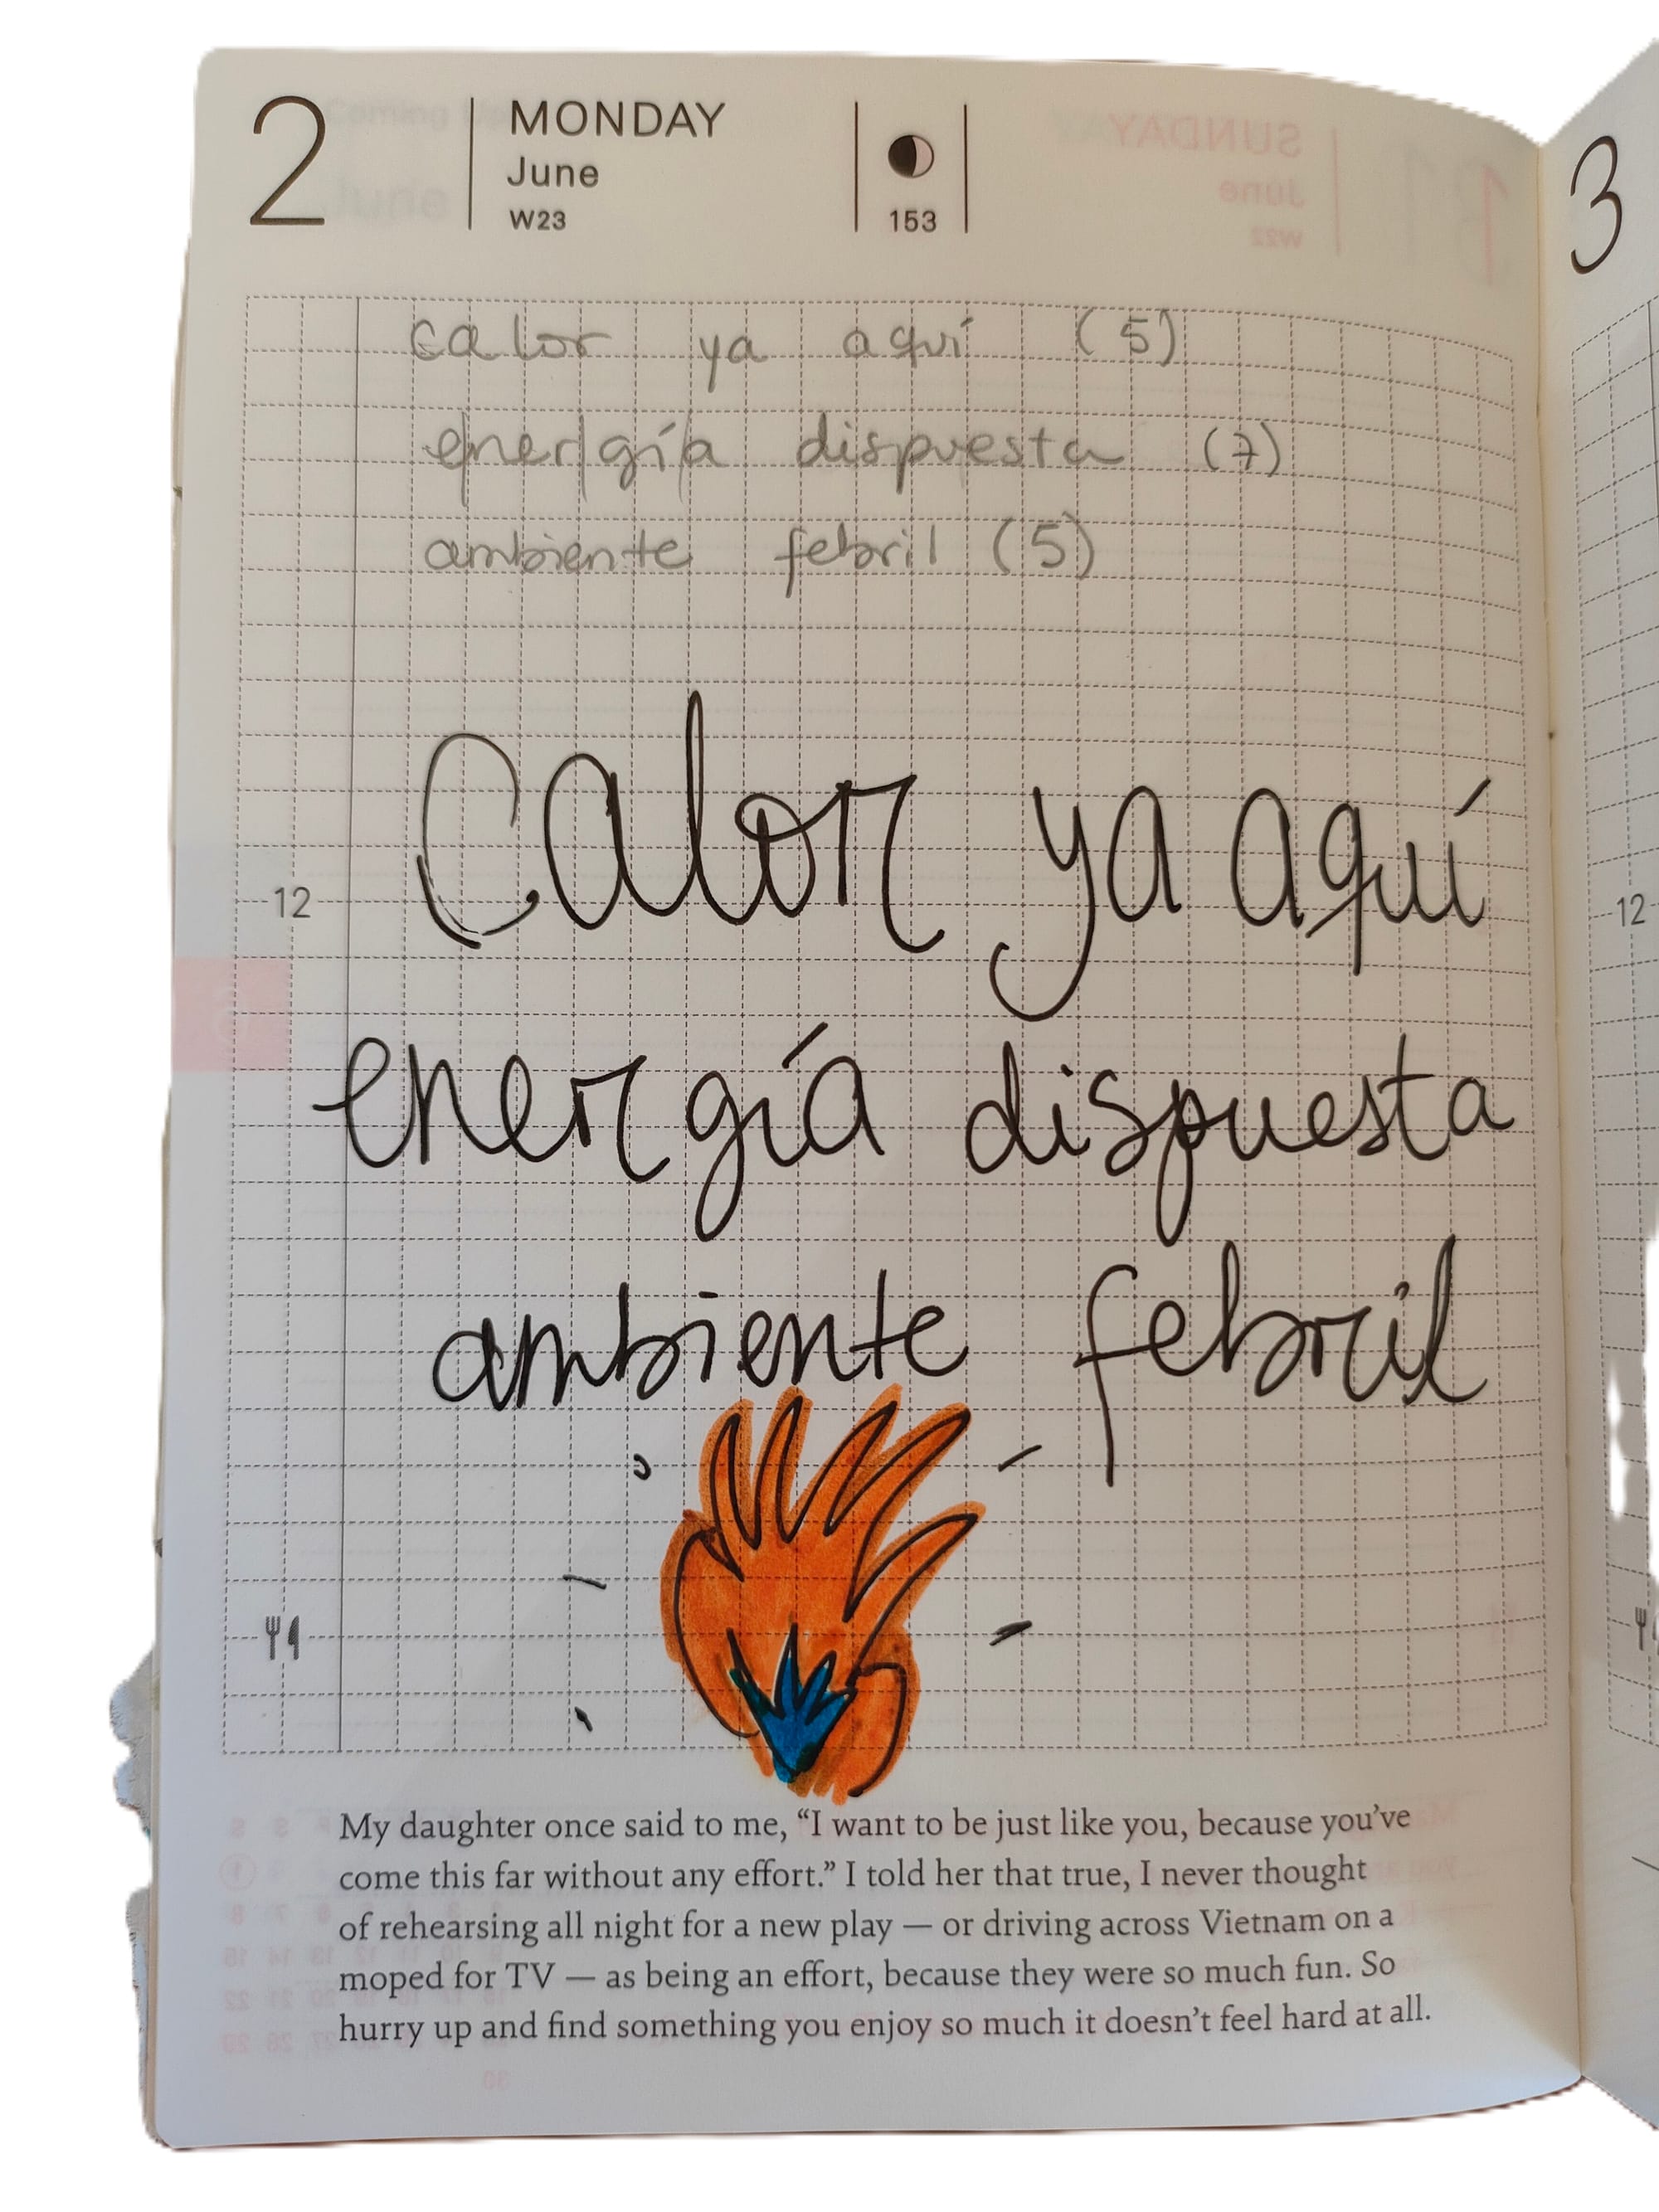 2 MONDAY
June
W23
153
3
calor ya aquí (5)
ener|gía dispuesta (7)
ambiente febril (5)
Calor ya aquí
12
12
energía dispuesta
ambiente febril
My daughter once said to me, “I want to be just like you, because you’ve
come this far without any effort.” I told her that true, I never thought
of rehearsing all night for a new play — or driving across Vietnam on a
moped for TV — as being an effort, because they were so much fun. So
hurry up and find something you enjoy so much it doesn’t feel hard at all.